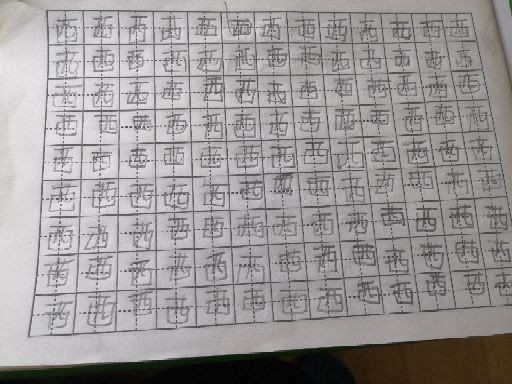 西西西西西西西西西西西西西
西西西西西西西西西西西西西
西西西西西西西西西西西西西
西西西西西西西西西西西西西
西西西西西西西西西西西西西
西西西西西西西西西西西西西
西西西西西西西西西西西西西
西西西西西西西西西西西西西
西西西西西西西西西西西西西